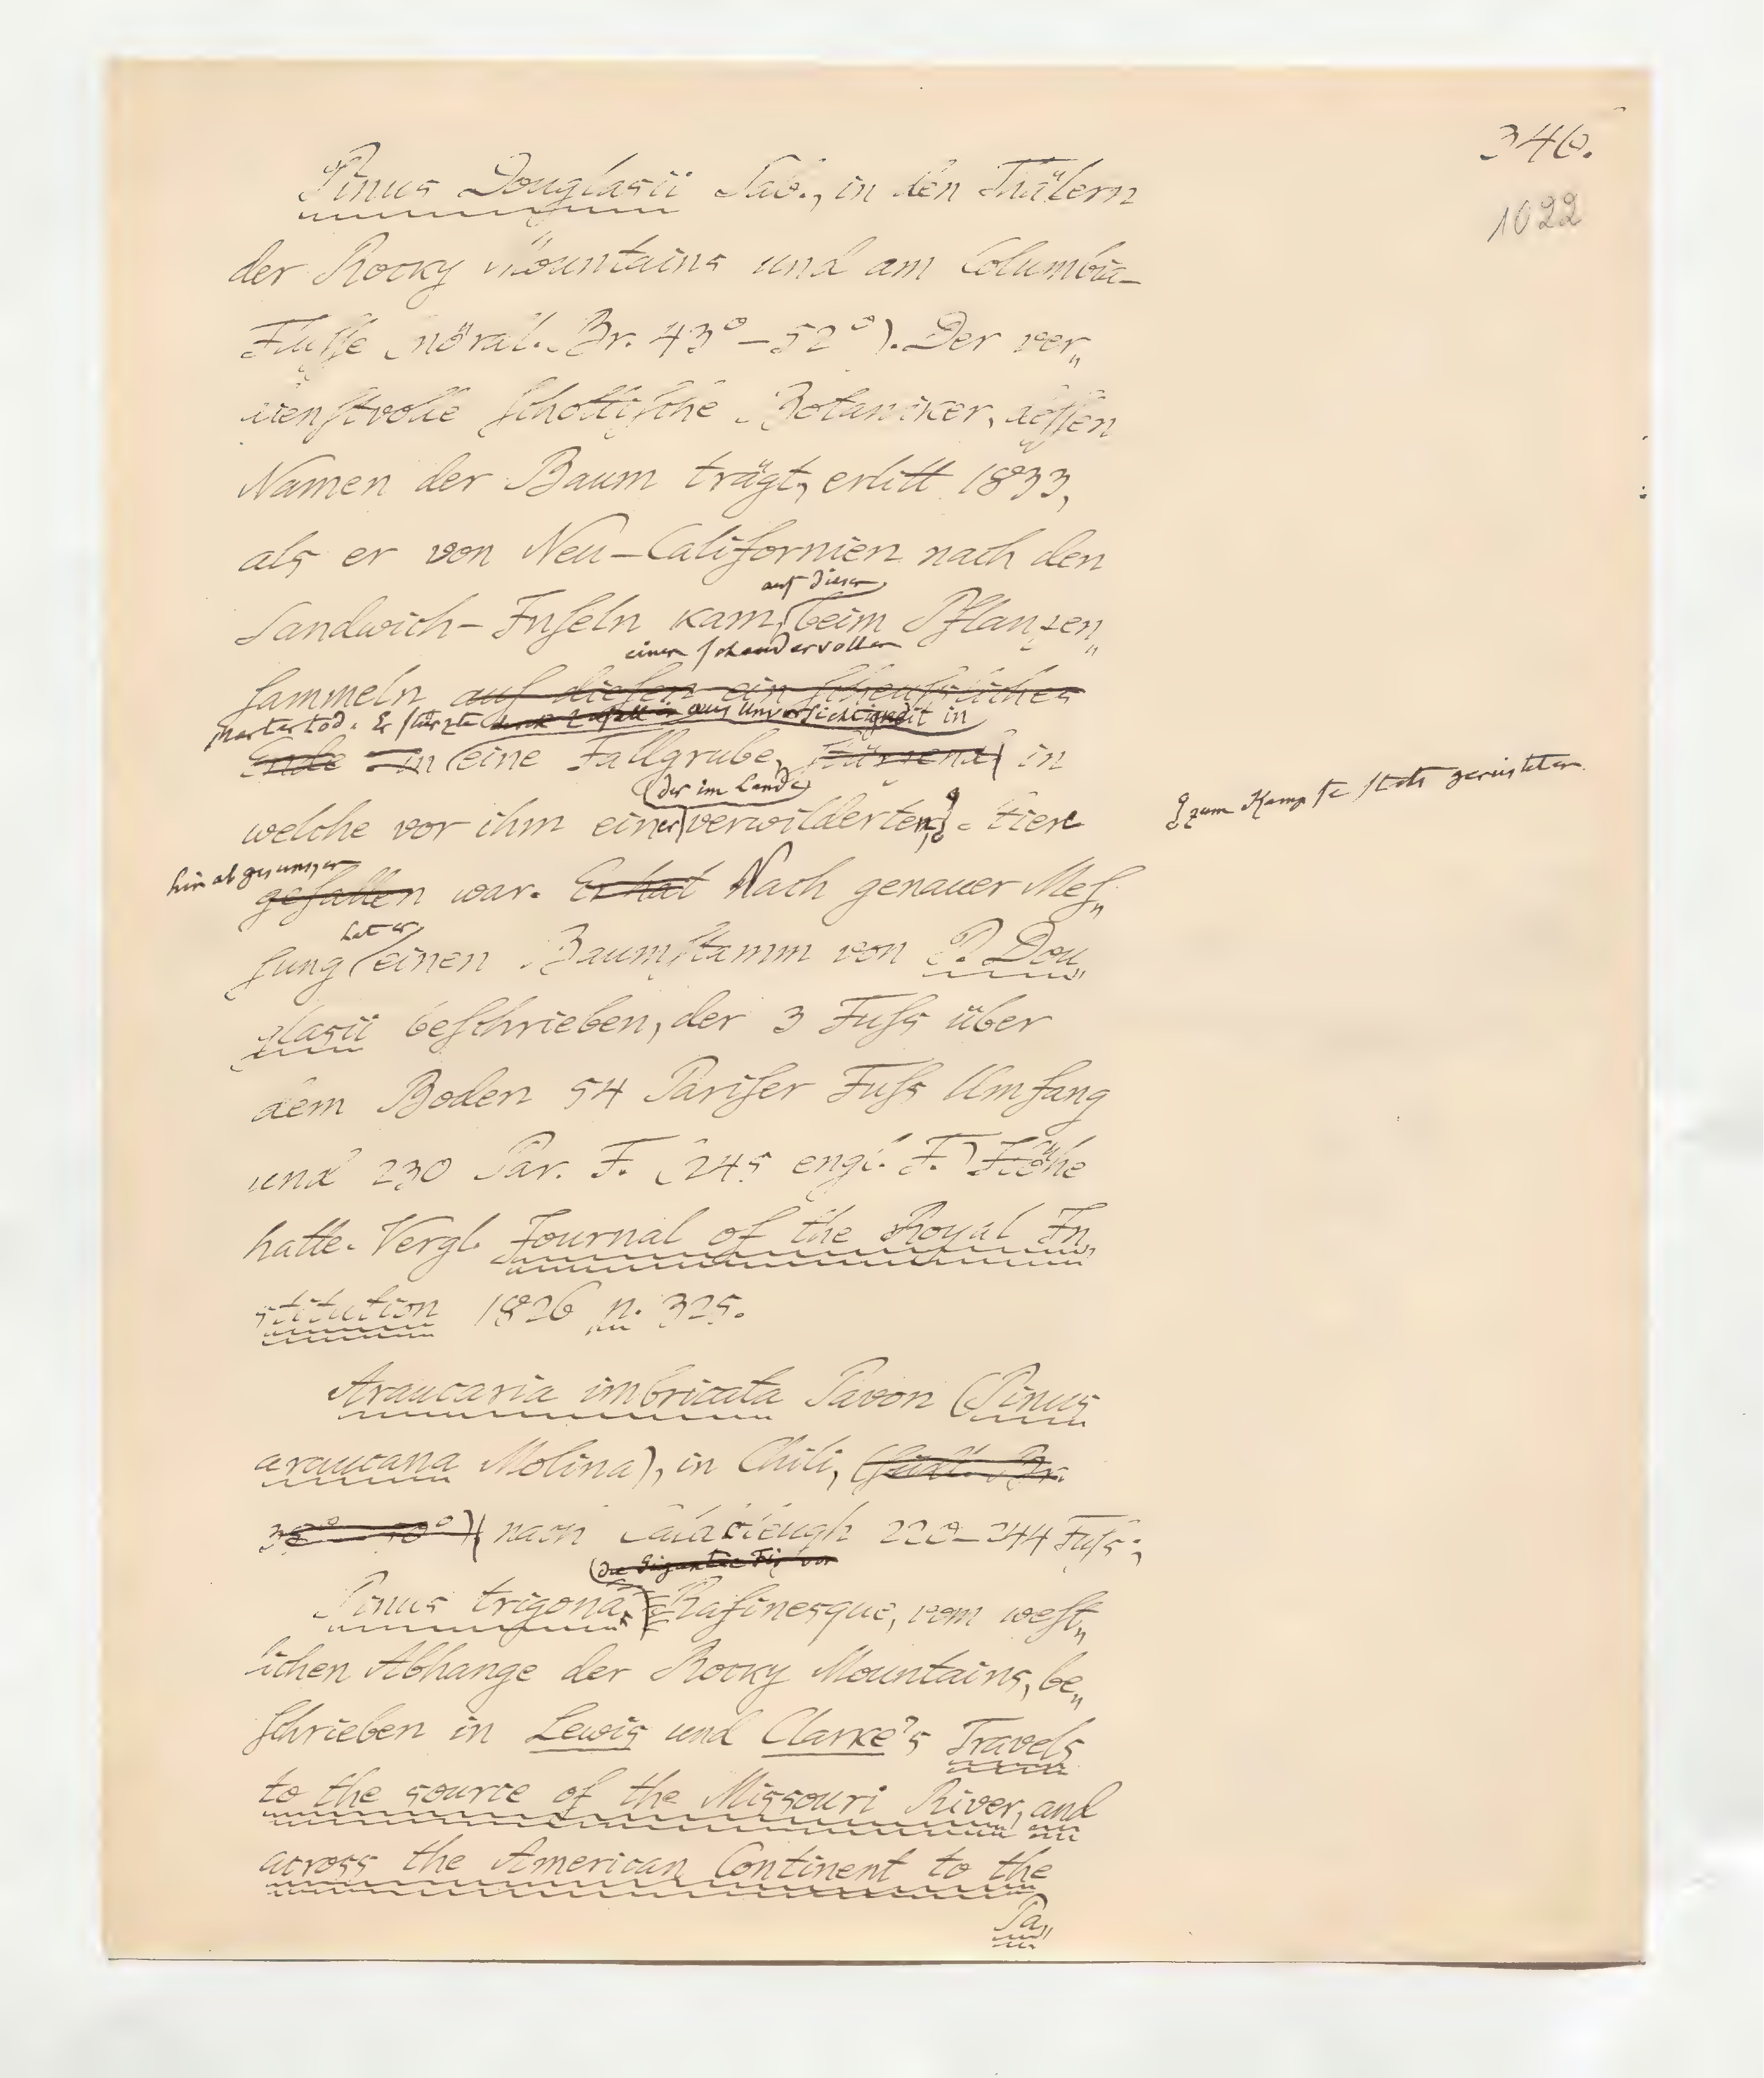 346.
1022
Pinus Douglasii Sab., in den Thälern
der Rocky Mountains und am Columbia-
Flusse (nördl. Br. 43° – 52°). Der ver„
dienstvolle schottische Botaniker, dessen
Namen der Baum trägt, erlitt 1833,
als er von Neu-Californien nach den
auf diesen
Sandwich-Inseln kam, beim Pflanzen„
einen schaudervollen
sammeln auf diesen ein scheussliches
Martertod. Er stürzte durch Zufall in aus Unvorsichtigkeit in
Ende in eine Fallgrube, stürzend in
der im Lande
welche vor ihm einer verwilderten, Stiere
zum Kampfe stets gerüsteten
hinabgesunken
gefallen war. Er hat Nach genauer Mes„
hat er
sung einen Baumstamm von P. Dou„
glasii beschrieben, der 3 Fuss über
dem Boden 54 Pariser Fuss Umfang
und 230 Par. F. (245 engl. F.) Höhe
hatte. Vergl. Journal of the Royal In„
stitution 1826 p. 325.
Araucaria imbricata Pavon (Pinus
araucana Molina), in Chili, (südl. Br.
nach Caldcleugh 220–244 Fuss;
Pinus trigona Rafinesque, vom west„
lichen Abhange der Rocky Mountains, be„
schrieben in Lewis und Clarke's Travels
to the source of the Missouri River, and
across the American Continent to the
Pa„